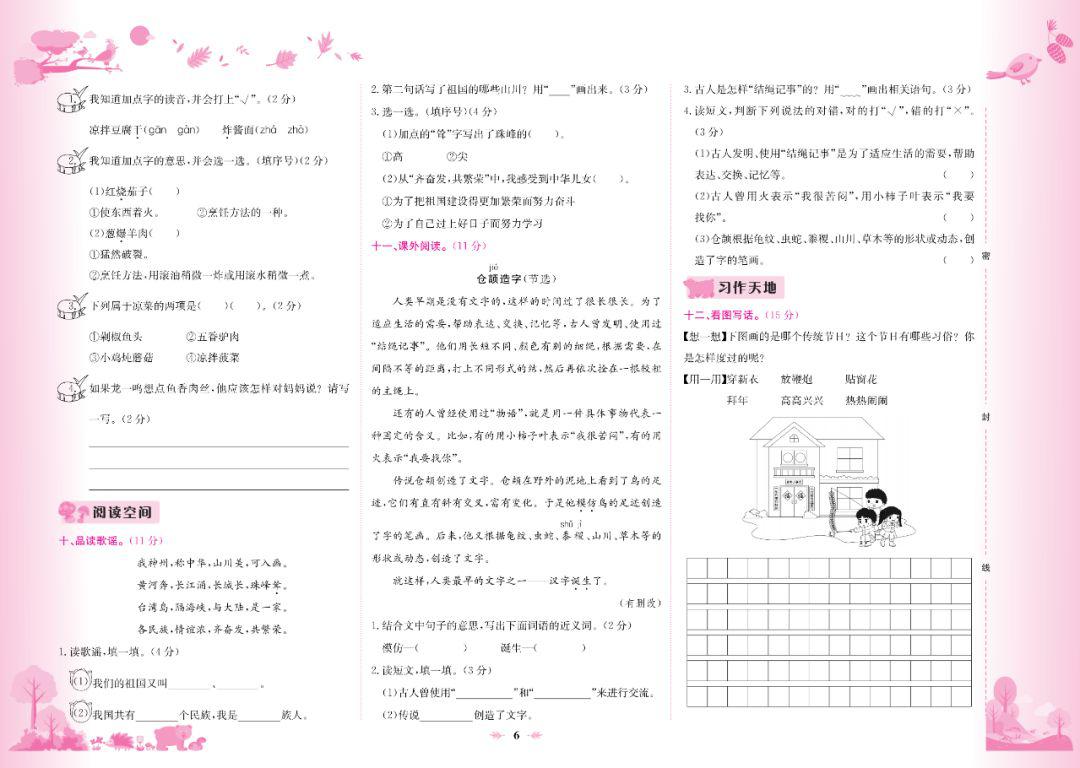 1. 我知道加点字的读音,并会打上“√”。(2 分)
凉拌豆腐干(gān gàn) 炸酱面(zhá zhà)
2. 我知道加点字的意思,并会选一选。(填序号)(2 分)
(1)红烧茄子( )
①使东西着火。 ②烹饪方法的一种。
(2)葱爆羊肉( )
①猛然破裂。
②烹饪方法,用滚油稍微一炸或用滚水稍微一煮。
3. 下列属于凉菜的两项是( )( )。(2 分)
①剁椒鱼头 ②五香驴肉
③小鸡炖蘑菇 ④凉拌菠菜
4. 如果龙一鸣想点鱼香肉丝,他应该怎样对妈妈说? 请写
一写。(2 分)
阅读空间
十、品读歌谣。(11 分)
我神州,称中华,山川美,可入画。
黄河奔,长江涌,长城长,珠峰耸。
台湾岛,隔海峡,与大陆,是一家。
各民族,情谊浓,齐奋发,共繁荣。
1. 读歌谣,填一填。(4 分)
(1)我们的祖国又叫________、________。
(2)我国共有________个民族,我是________族人。
2. 第二句话写了祖国的哪些山川? 用“____”画出来。(3 分)
3. 选一选。(填序号)(4 分)
(1)加点的“耸”字写出了珠峰的( )。
①高 ②尖
(2)从“齐奋发,共繁荣”中,我感受到中华儿女( )。
①为了把祖国建设得更加繁荣而努力奋斗
②为了自己过上好日子而努力学习
十一、课外阅读。(11 分)
jié
仓颉造字(节选)
人类早期是没有文字的,这样的时间过了很长很长。为了
适应生活的需要,帮助表达、交换、记忆等,古人曾发明、使用过
“结绳记事”。他们用长短不同、颜色有别的细绳,根据需要,在
间隔不等的距离,打上不同形式的结,然后再依次拴在一根较粗
的主绳上。
还有的人曾经使用过“物语”,就是用一件具体事物代表一
种固定的含义。比如,有的用小柿子叶表示“我很苦闷”,有的用
火表示“我要找你”。
传说仓颉创造了文字。仓颉在野外的泥地上看到了鸟的足
迹,它们有直有斜有交叉,富有变化。于是他模仿鸟的足迹创造
shǔ jì
了字的笔画。后来,他又根据龟纹、虫蛇、黍稷、山川、草木等的
形状或动态,创造了文字。
就这样,人类最早的文字之一——汉字诞生了。
(有删改)
1. 结合文中句子的意思,写出下面词语的近义词。(2 分)
模仿—( ) 诞生—( )
2. 读短文,填一填。(3 分)
(1)古人曾使用“__________”和“__________”来进行交流。
(2)传说__________创造了文字。
3. 古人是怎样“结绳记事”的? 用“﹏﹏”画出相关语句。(3 分)
4. 读短文,判断下列说法的对错,对的打“√”,错的打“×”。
(3 分)
(1)古人发明、使用“结绳记事”是为了适应生活的需要,帮助
表达、交换、记忆等。 ( )
(2)古人曾用火表示“我很苦闷”,用小柿子叶表示“我要
找你”。 ( )
(3)仓颉根据龟纹、虫蛇、黍稷、山川、草木等的形状或动态,创
造了字的笔画。 ( )
习作天地
十二、看图写话。(15 分)
【想一想】下图画的是哪个传统节日? 这个节日有哪些习俗? 你
是怎样度过的呢?
【用一用】穿新衣 放鞭炮 贴窗花
拜年 高高兴兴 热热闹闹
密
封
线
6